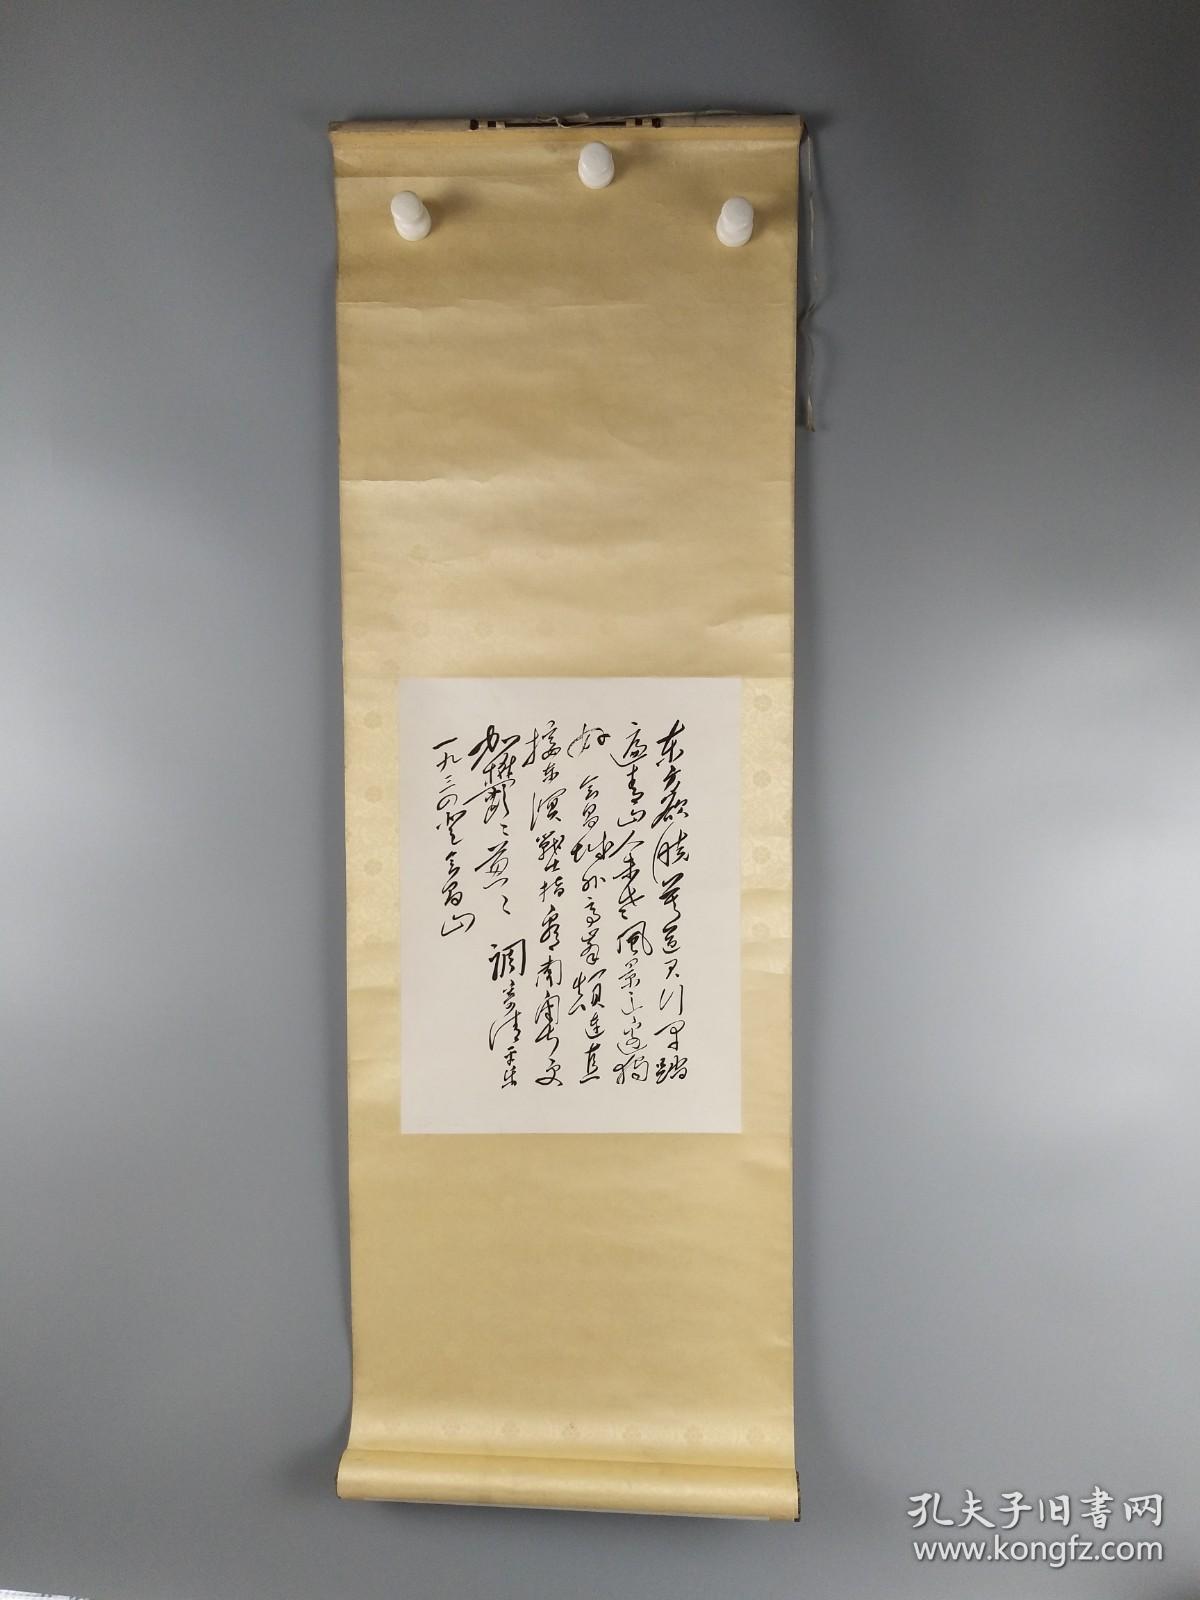 东方欲曉莫道君行早踏
遍青山人未老風景这邊独
好 会昌城外高峯顛連直
接东溟戰士指看南粵更
加鬱〻葱〻 調寄清平樂
一九三四登会昌山
孔夫子旧书网
www.kongfz.com